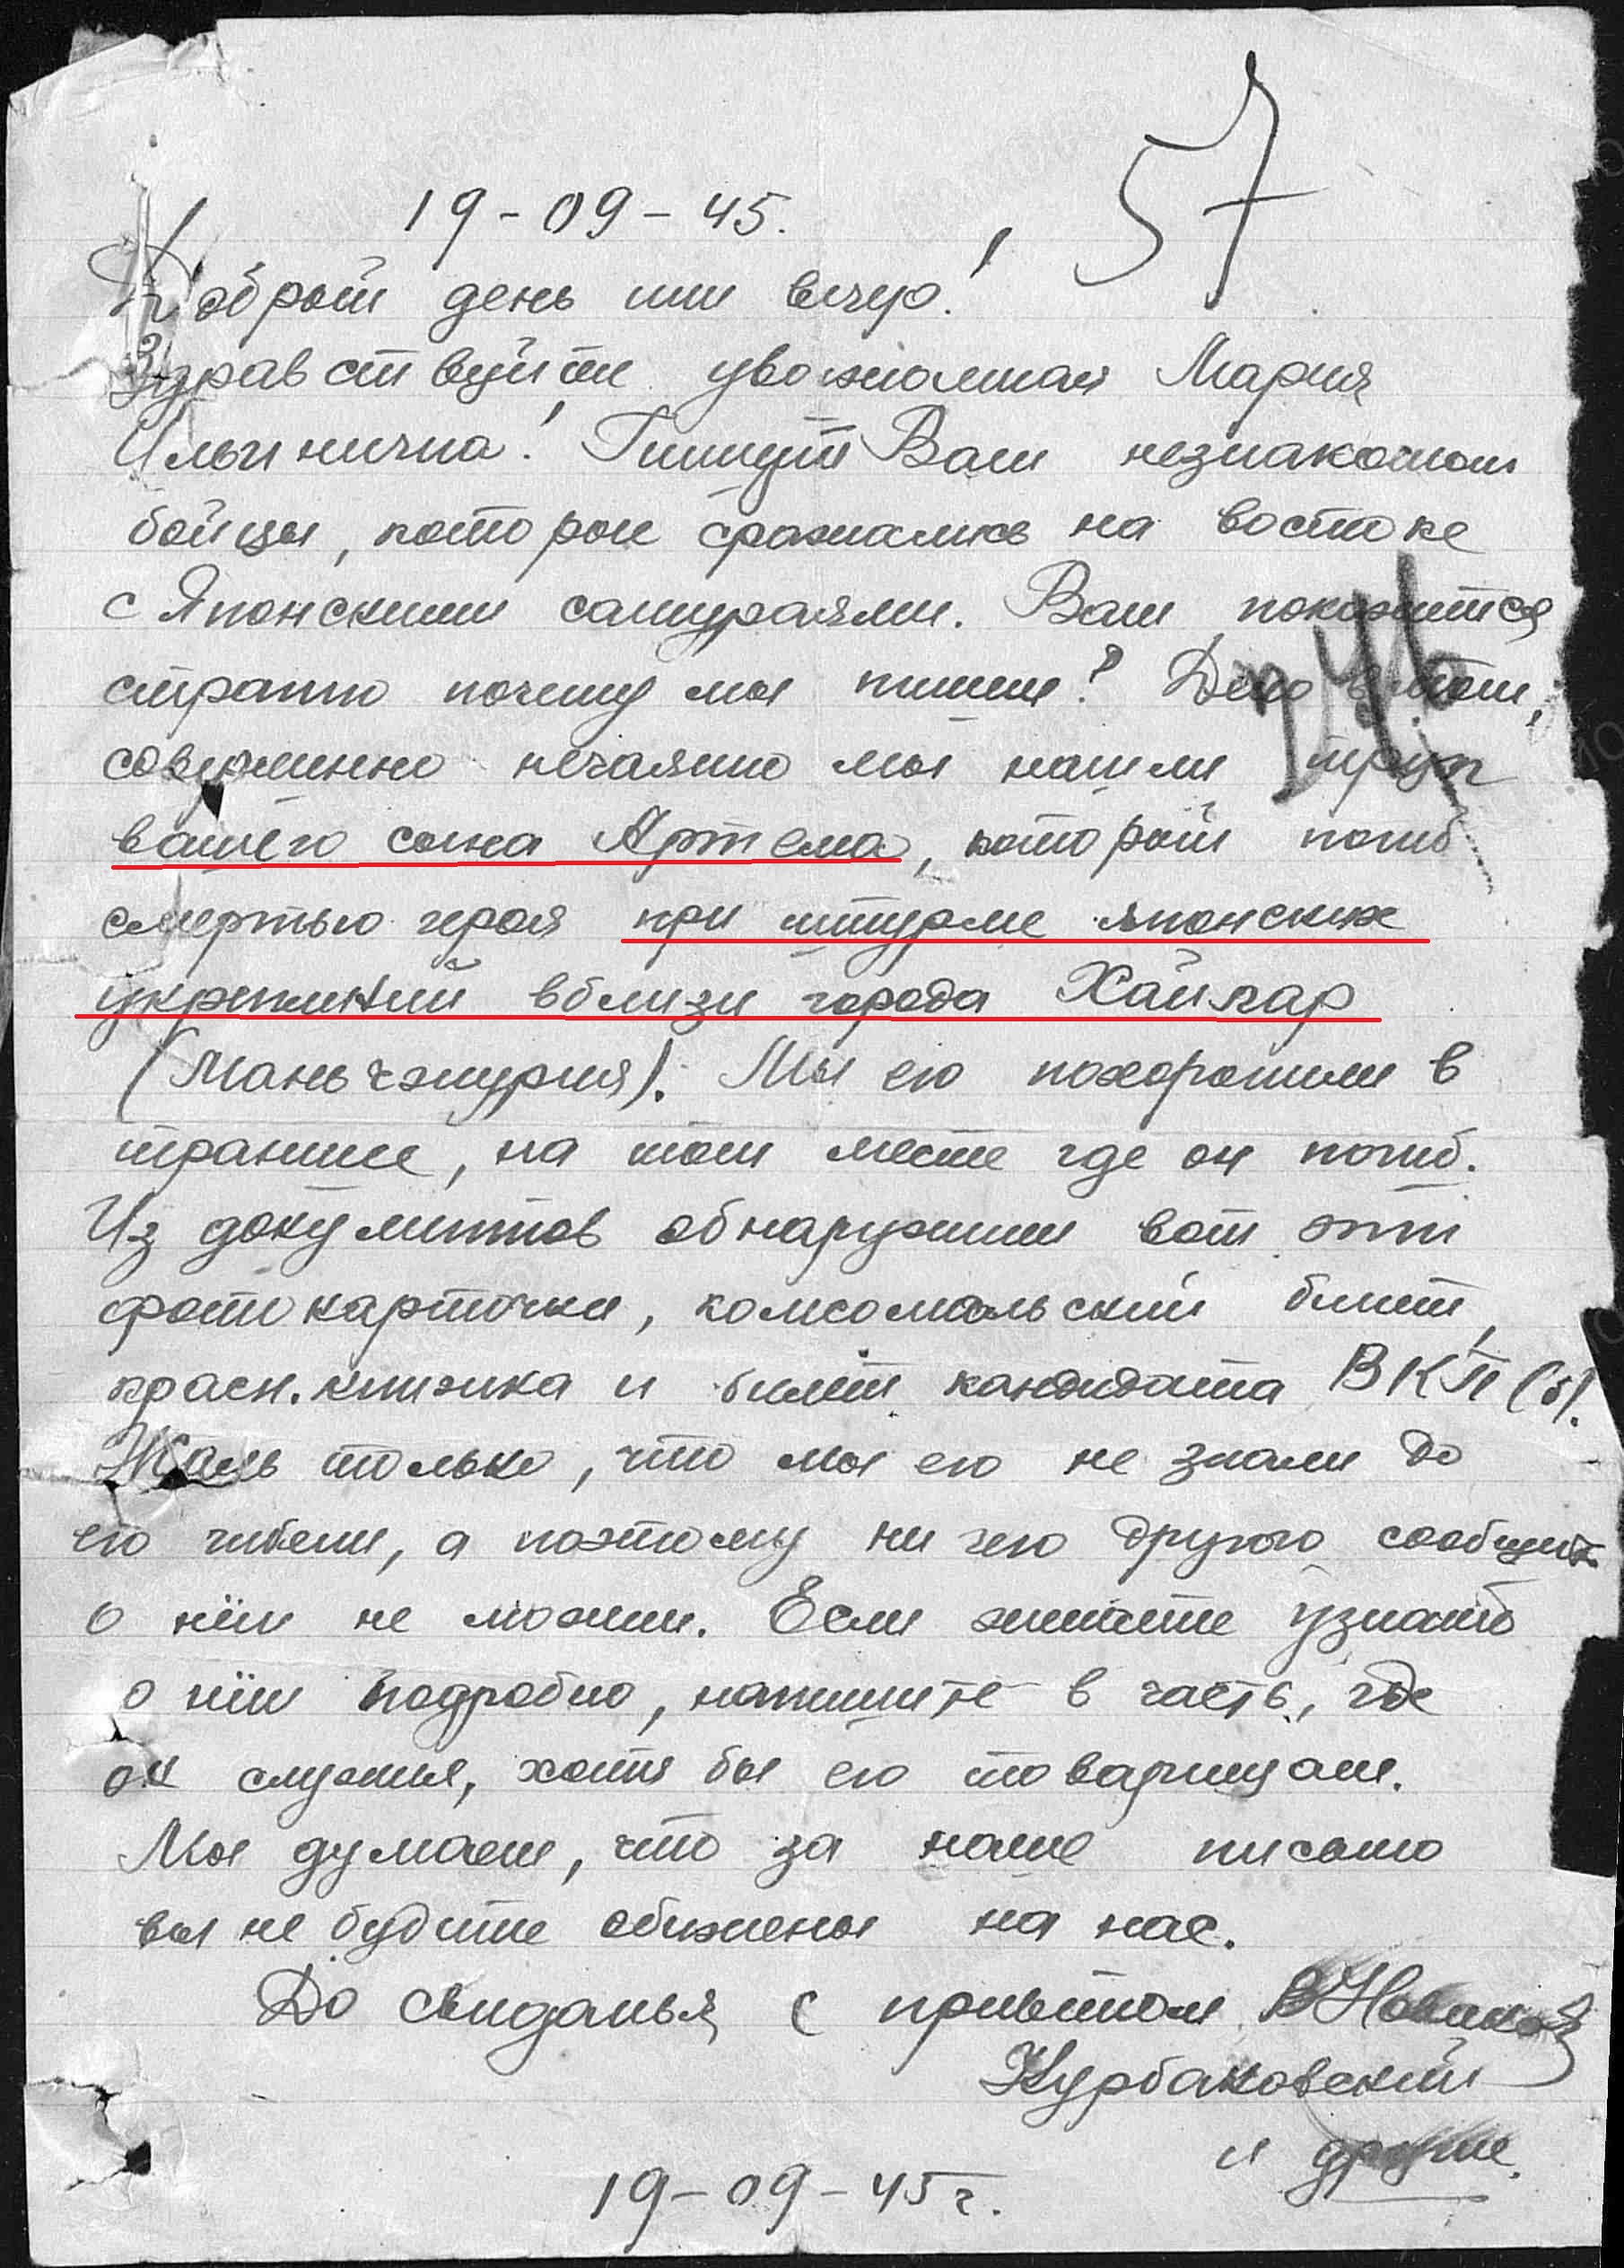 57
19-09-45.
Добрый день или вечер!
Здравствуйте уважаемая Мария
Ильинична! Пишут Вам незнакомые
бойцы, которые сражались на востоке
с Японскими самураями. Вам покажится
странно почему мы пишем? Дело в том,
совершенно нечаянно мы нашли труп
вашего сына Артема, который погиб
смертью героя при штурме японских
укреплений вблизи города Хайлар
(Маньчжурия). Мы его похоронили в
траншее, на том месте где он погиб.
Из документов обнаружили вот эти
фотокарточки, комсомольский билет,
красн. книжка и билет кандидата ВКП(б).
Жаль только, что мы его не знали до
его гибели, а поэтому ни чего другого сообщить
о нём не можем. Если желаете узнать
о нём подробно, напишите в часть, где
он служил, хотя бы его товарищам.
Мы думаем, что за наше письмо
вы не будите обижены на нас.
До свиданья с приветом В Новиков
Курбаковский
и другие.
19-09-45 г.